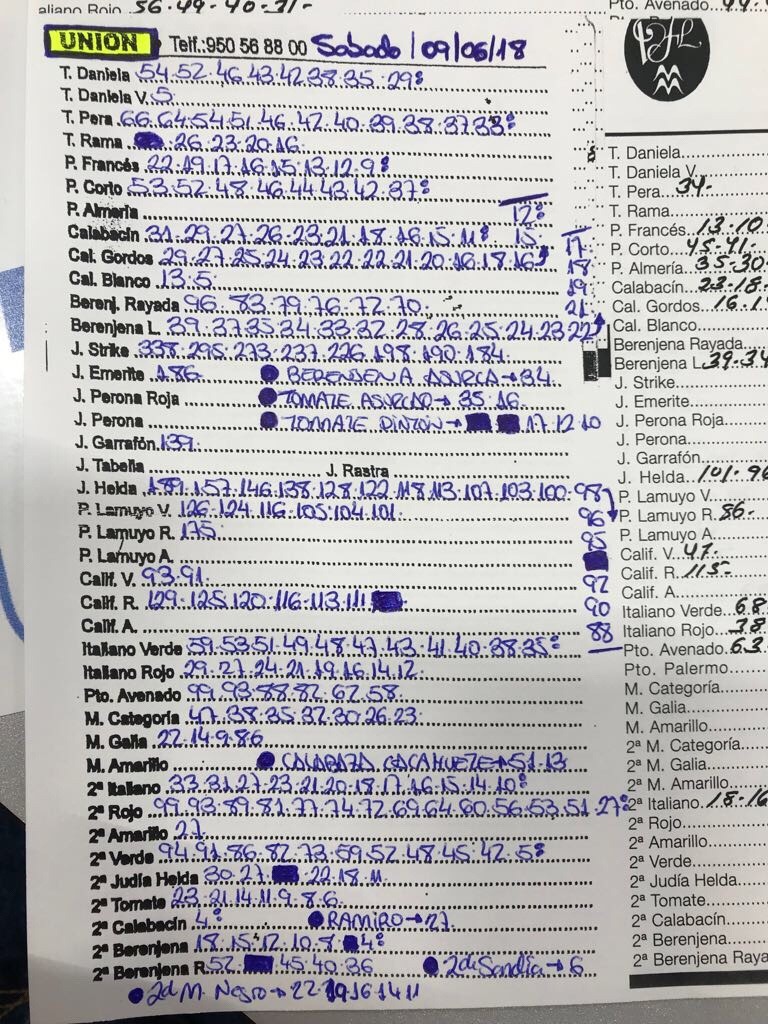 aliano Rojo 56.49.40.31-
UNION Telf.:950 56 88 00 Sabado/09/06/18
T. Daniela 54.52.46.43.42.38.35.29:
T. Daniela V. 5
T. Pera 66.64.54.51.46.42.40.39.38.37.33:
T. Rama 26.23.20.16
P. Francés 22.19.17.16.15.13.12.9:
P. Corto 53.52.48.46.44.43.42.37:
P. Almería 12:
Calabacín 31.29.27.26.23.21.18.16.15.11: 15 17
Cal. Gordos 29.27.25.24.23.22.22.21.20.16.18.16 18
Cal. Blanco 13.5 19
Berenj. Rayada 96.83.79.76.72.70 21
Berenjena L. 39.37.35.34.33.32.28.26.25.24.23 22
J. Strike 338.295.273.237.226.198.190.184
J. Emerite 186 ● BERENJENA ASURCA→34
J. Perona Roja ● TOMATE ASURCAO→35.16
J. Perona ● TOMATE PINTON→ 17.12.10
J. Garrafón 139
J. Tabella J. Rastra
J. Helda 189.157.146.138.128.122.118.113.107.103.100.98
P. Lamuyo V. 126.124.116.105.104.101 96
P. Lamuyo R. 175 95
P. Lamuyo A.
Calif. V. 93.91 92
Calif. R. 129.125.120.116.113.111 90
Calif. A. 88
Italiano Verde 59.53.51.49.48.47.43.41.40.38.35:
Italiano Rojo 29.27.24.21.19.16.14.12
Pto. Avenado 99.93.88.82.62.58
M. Categoría 47.38.35.32.30.26.23
M. Galia 22.14.9.8.6
M. Amarillo ● CALABAZA CACAHUETE→51.13
2ª Italiano 33.31.27.23.21.20.18.17.16.15.14.10:
2ª Rojo 99.93.89.81.77.74.72.69.64.60.56.53.51.27:
2ª Amarillo 27
2ª Verde 94.91.86.82.73.59.52.48.45.42.5:
2ª Judía Helda 30.27. 22.18.11
2ª Tomate 23.21.14.11.9.8.6
2ª Calabacín 4: ● RAMIRO→27
2ª Berenjena 18.15.12.10.8. 4:
2ª Berenjena R. 52. 45.40.36 ● 2ª Sandía→6
● 2ª M. Negro→22.19.16.14.11
Pto. Avenado 
T. Daniela
T. Daniela V.
T. Pera 34-
T. Rama
P. Francés 13-10
P. Corto 45-41-
P. Almería 35-30
Calabacín 23-18-
Cal. Gordos 16-1
Cal. Blanco
Berenjena Rayada
Berenjena L. 39-34
J. Strike
J. Emerite
J. Perona Roja
J. Perona
J. Garrafón
J. Helda 101-96
P. Lamuyo V.
P. Lamuyo R. 86-
P. Lamuyo A.
Calif. V. 47-
Calif. R. 115-
Calif. A.
Italiano Verde 68
Italiano Rojo 38
Pto. Avenado 63
Pto. Palermo
M. Categoría
M. Galia
M. Amarillo
2ª M. Categoría
2ª M. Galia
2ª M. Amarillo
2ª Italiano 18-16
2ª Rojo
2ª Amarillo
2ª Verde
2ª Judía Helda
2ª Tomate
2ª Calabacín
2ª Berenjena
2ª Berenjena Raya